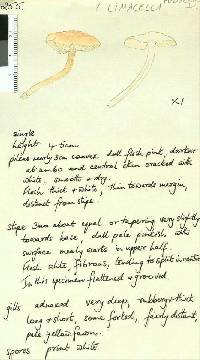 ? LIMACELLA
X1
single
height 4.5cm
pileus nearly 3cm convex dull flesh pink, darker
at umbo and central skin cracked with
white, smooth & dry.
flesh thick & white, thin towards margin,
distinct from stipe
stipe 3mm about equal or tapering very slightly
towards base, dull pale pinkish with
surface mealy warts in upper half.
flesh white, fibrous, tending to split in centre
In this specimen flattened & grooved
gills adnexed very deep, rubbery & thick
long & short, some forked, fairly distant,
pale yellow fawn.
spores print white.